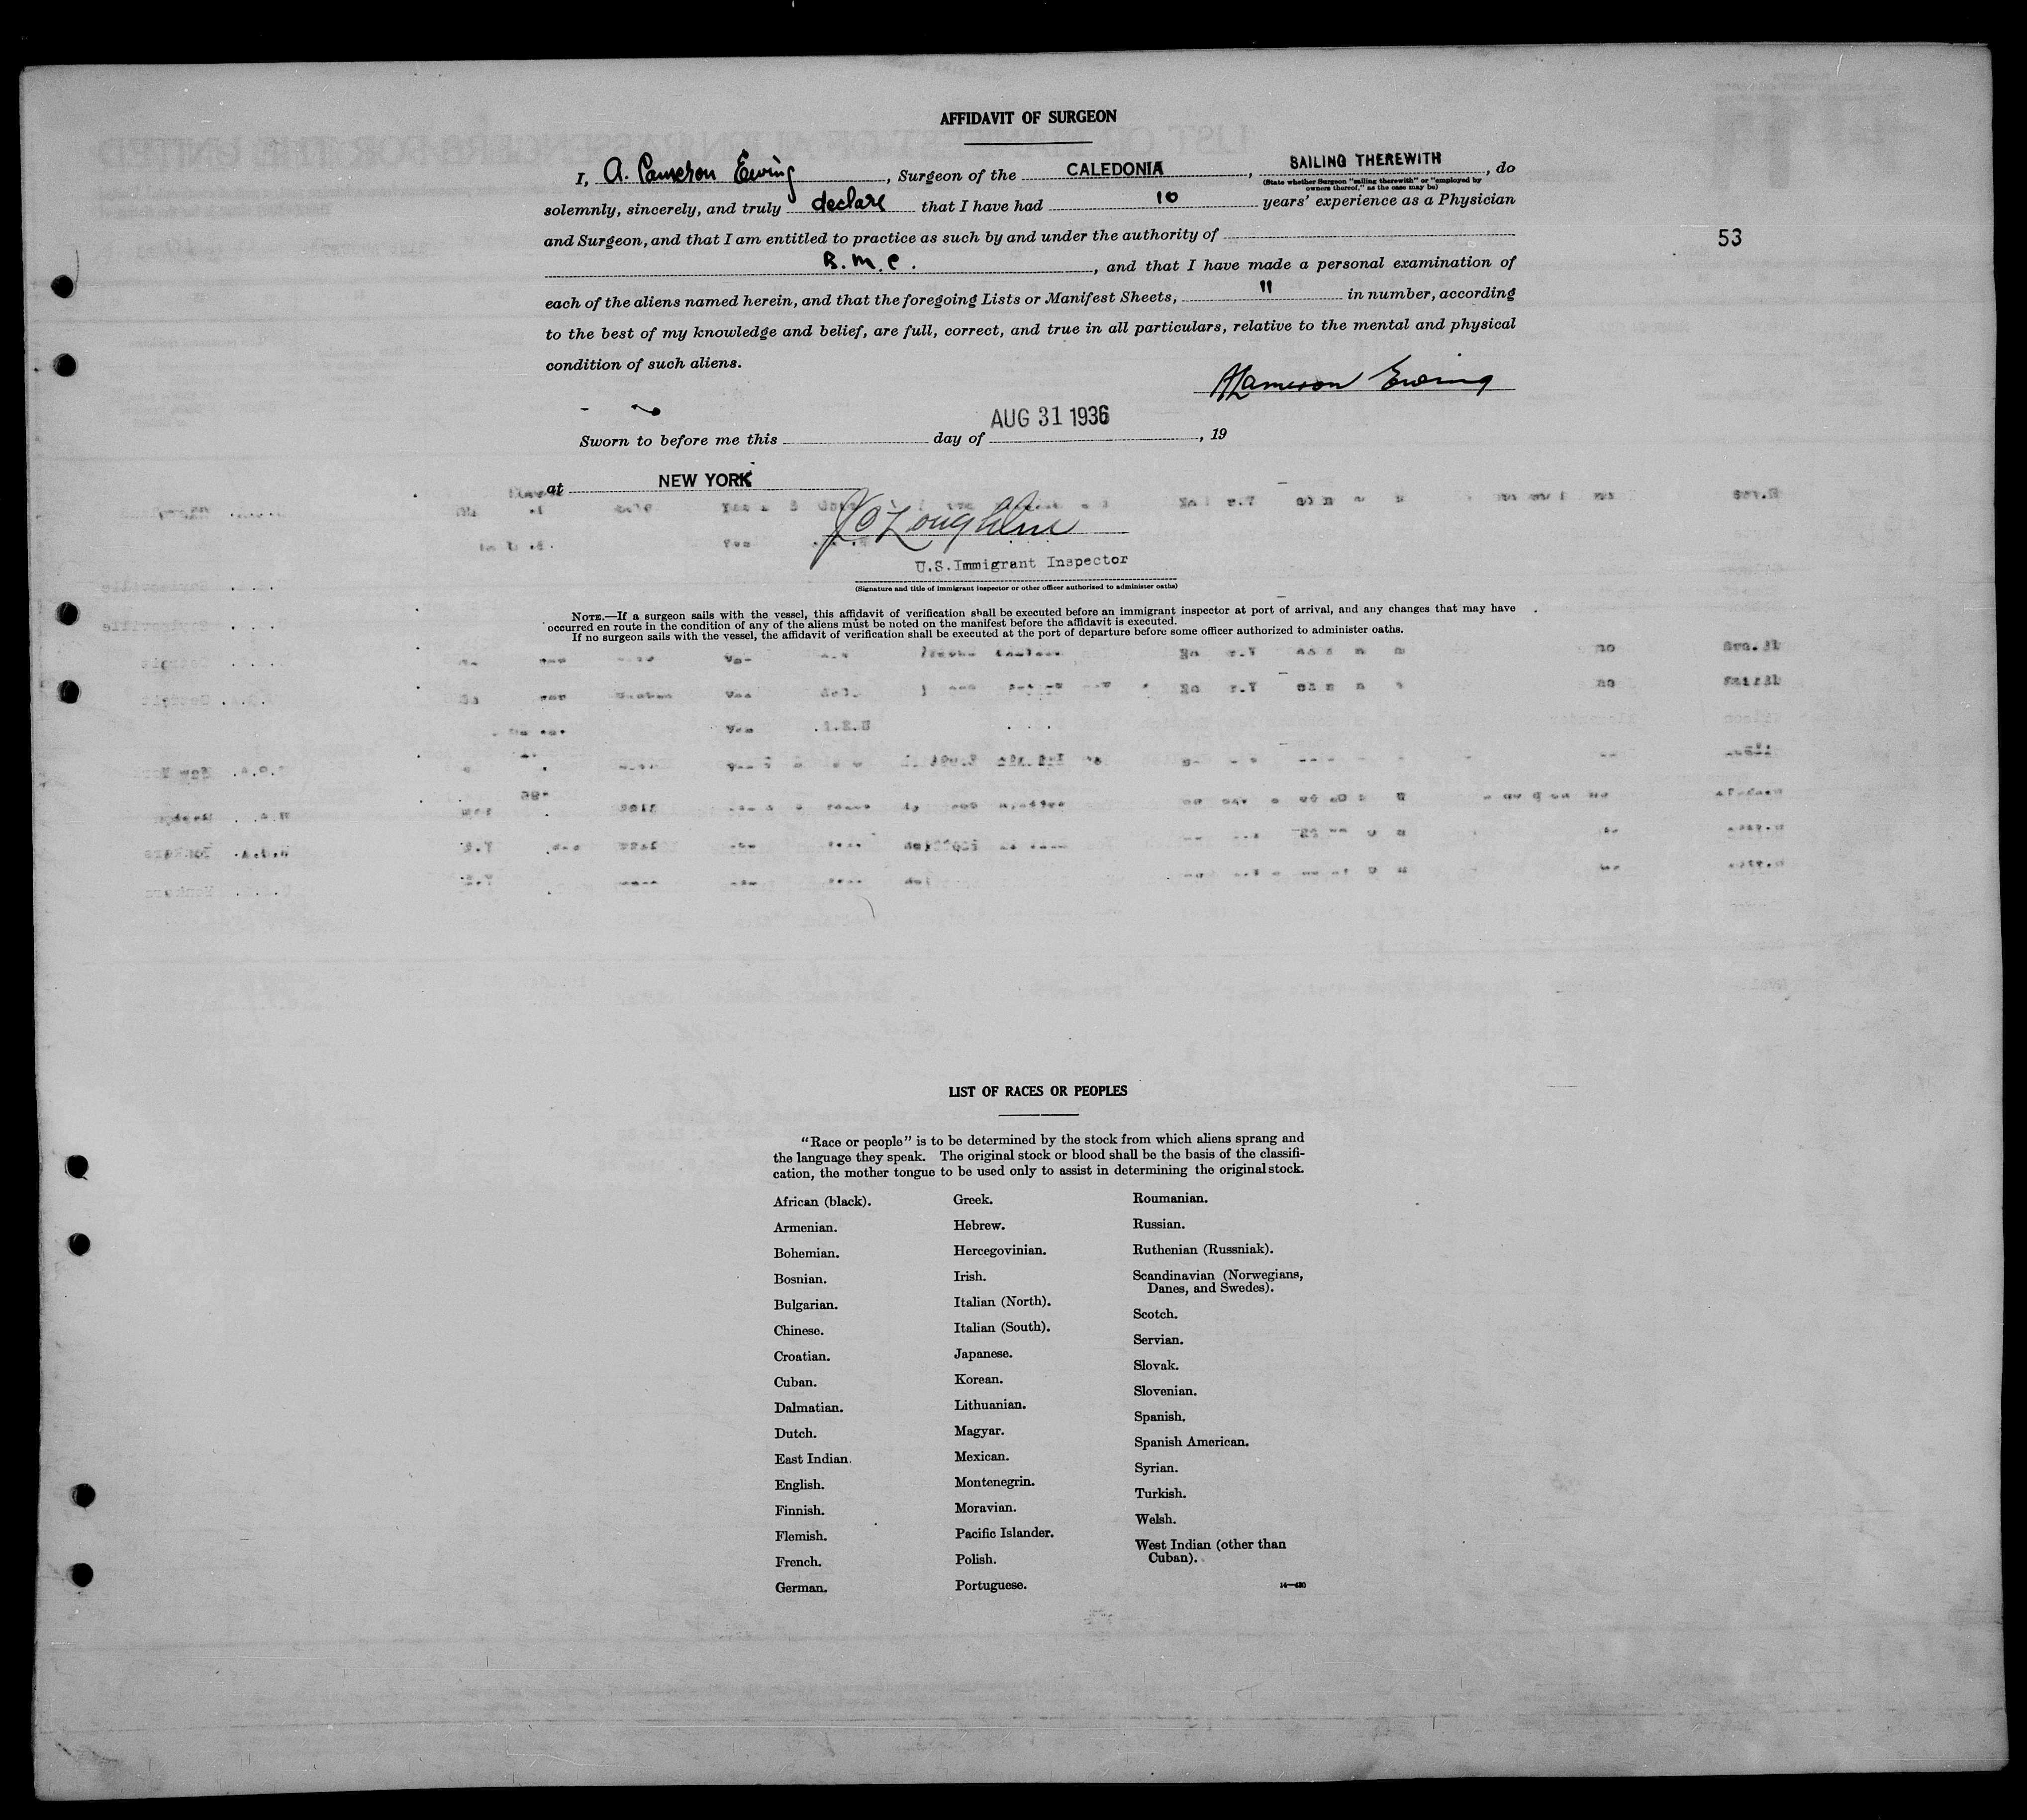 AFFIDAVIT OF SURGEON
I, A. Cameron Ewing, Surgeon of the CALEDONIA, SAILING THEREWITH, do
(State whether Surgeon "sailing therewith" or "employed by
owners thereof," as the case may be)
solemnly, sincerely, and truly declare that I have had 10 years' experience as a Physician
and Surgeon, and that I am entitled to practice as such by and under the authority of
53
B.M.C., and that I have made a personal examination of
each of the aliens named herein, and that the foregoing Lists or Manifest Sheets, 11 in number, according
to the best of my knowledge and belief, are full, correct, and true in all particulars, relative to the mental and physical
condition of such aliens.
A Cameron Ewing
AUG 31 1936
Sworn to before me this day of , 19
at NEW YORK
U.S. Immigrant Inspector
(Signature and title of immigrant inspector or other officer authorized to administer oaths)
NOTE.—If a surgeon sails with the vessel, this affidavit of verification shall be executed before an immigrant inspector at port of arrival, and any changes that may have
occurred en route in the condition of any of the aliens must be noted on the manifest before the affidavit is executed.
If no surgeon sails with the vessel, the affidavit of verification shall be executed at the port of departure before some officer authorized to administer oaths.
LIST OF RACES OR PEOPLES
"Race or people" is to be determined by the stock from which aliens sprang and
the language they speak. The original stock or blood shall be the basis of the classifi-
cation, the mother tongue to be used only to assist in determining the original stock.
African (black).
Armenian.
Bohemian.
Bosnian.
Bulgarian.
Chinese.
Croatian.
Cuban.
Dalmatian.
Dutch.
East Indian.
English.
Finnish.
Flemish.
French.
German.
Greek.
Hebrew.
Hercegovinian.
Irish.
Italian (North).
Italian (South).
Japanese.
Korean.
Lithuanian.
Magyar.
Mexican.
Montenegrin.
Moravian.
Pacific Islander.
Polish.
Portuguese.
Roumanian.
Russian.
Ruthenian (Russniak).
Scandinavian (Norwegians,
Danes, and Swedes).
Scotch.
Servian.
Slovak.
Slovenian.
Spanish.
Spanish American.
Syrian.
Turkish.
Welsh.
West Indian (other than
Cuban).